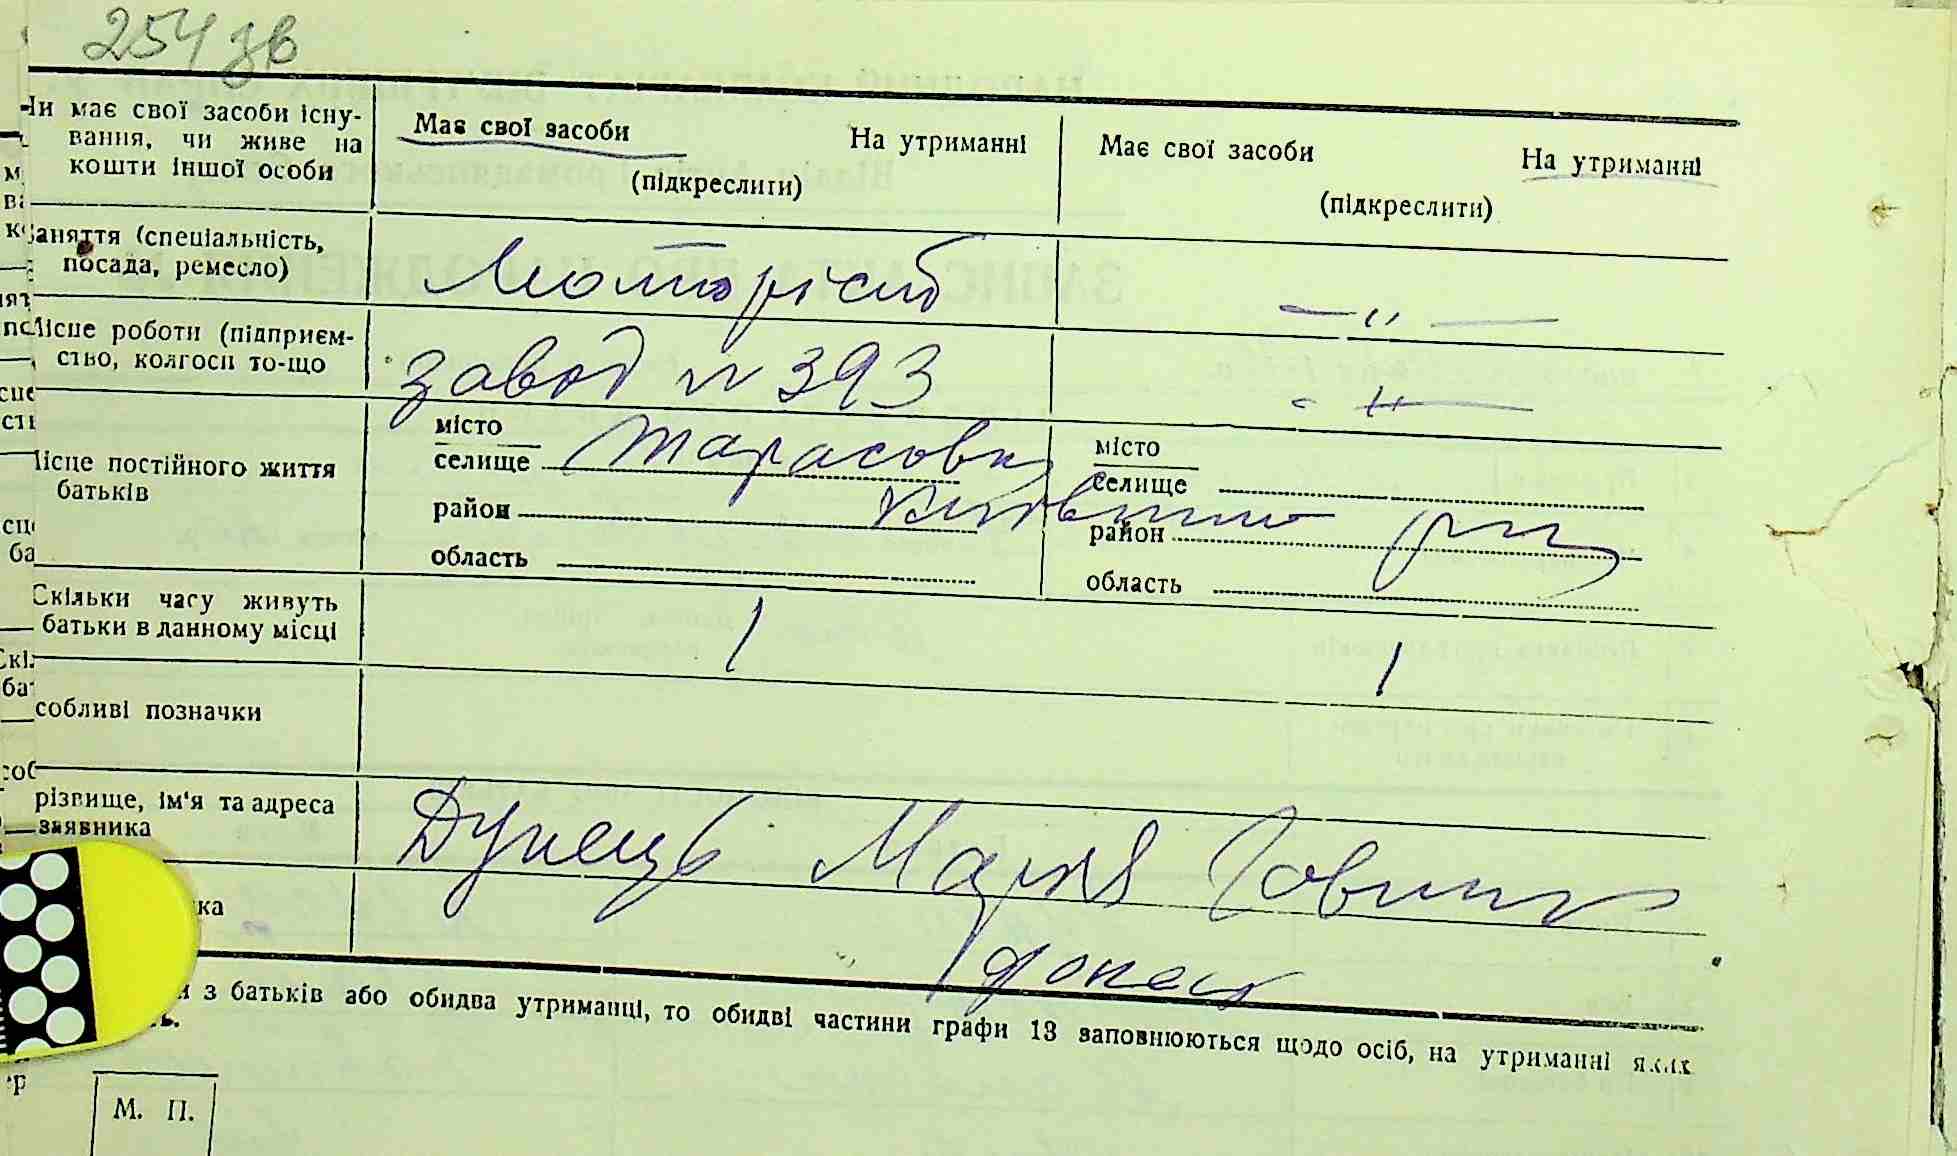 254 зв
Чи має свої засоби існу-
вання, чи живе на
кошти іншої особи
Має свої засоби На утриманні
(підкреслити)
Має свої засоби На утриманні
(підкреслити)
заняття (спеціальність,
посада, ремесло)
Моторіст
— " —
Місце роботи (підприєм-
ство, колгосп то-що
завод № 393
- " —
Місце постійного життя
батьків
місто
селище Тарасовка
район
область
місто
селище
район
область
Скільки часу живуть
батьки в данному місці
собливі позначки
різвище, ім'я та адреса
заявника
Марія
ка
з батьків або обидва утриманці, то обидві частини графи 13 заповнюються щодо осіб, на утриманні яких
М. П.